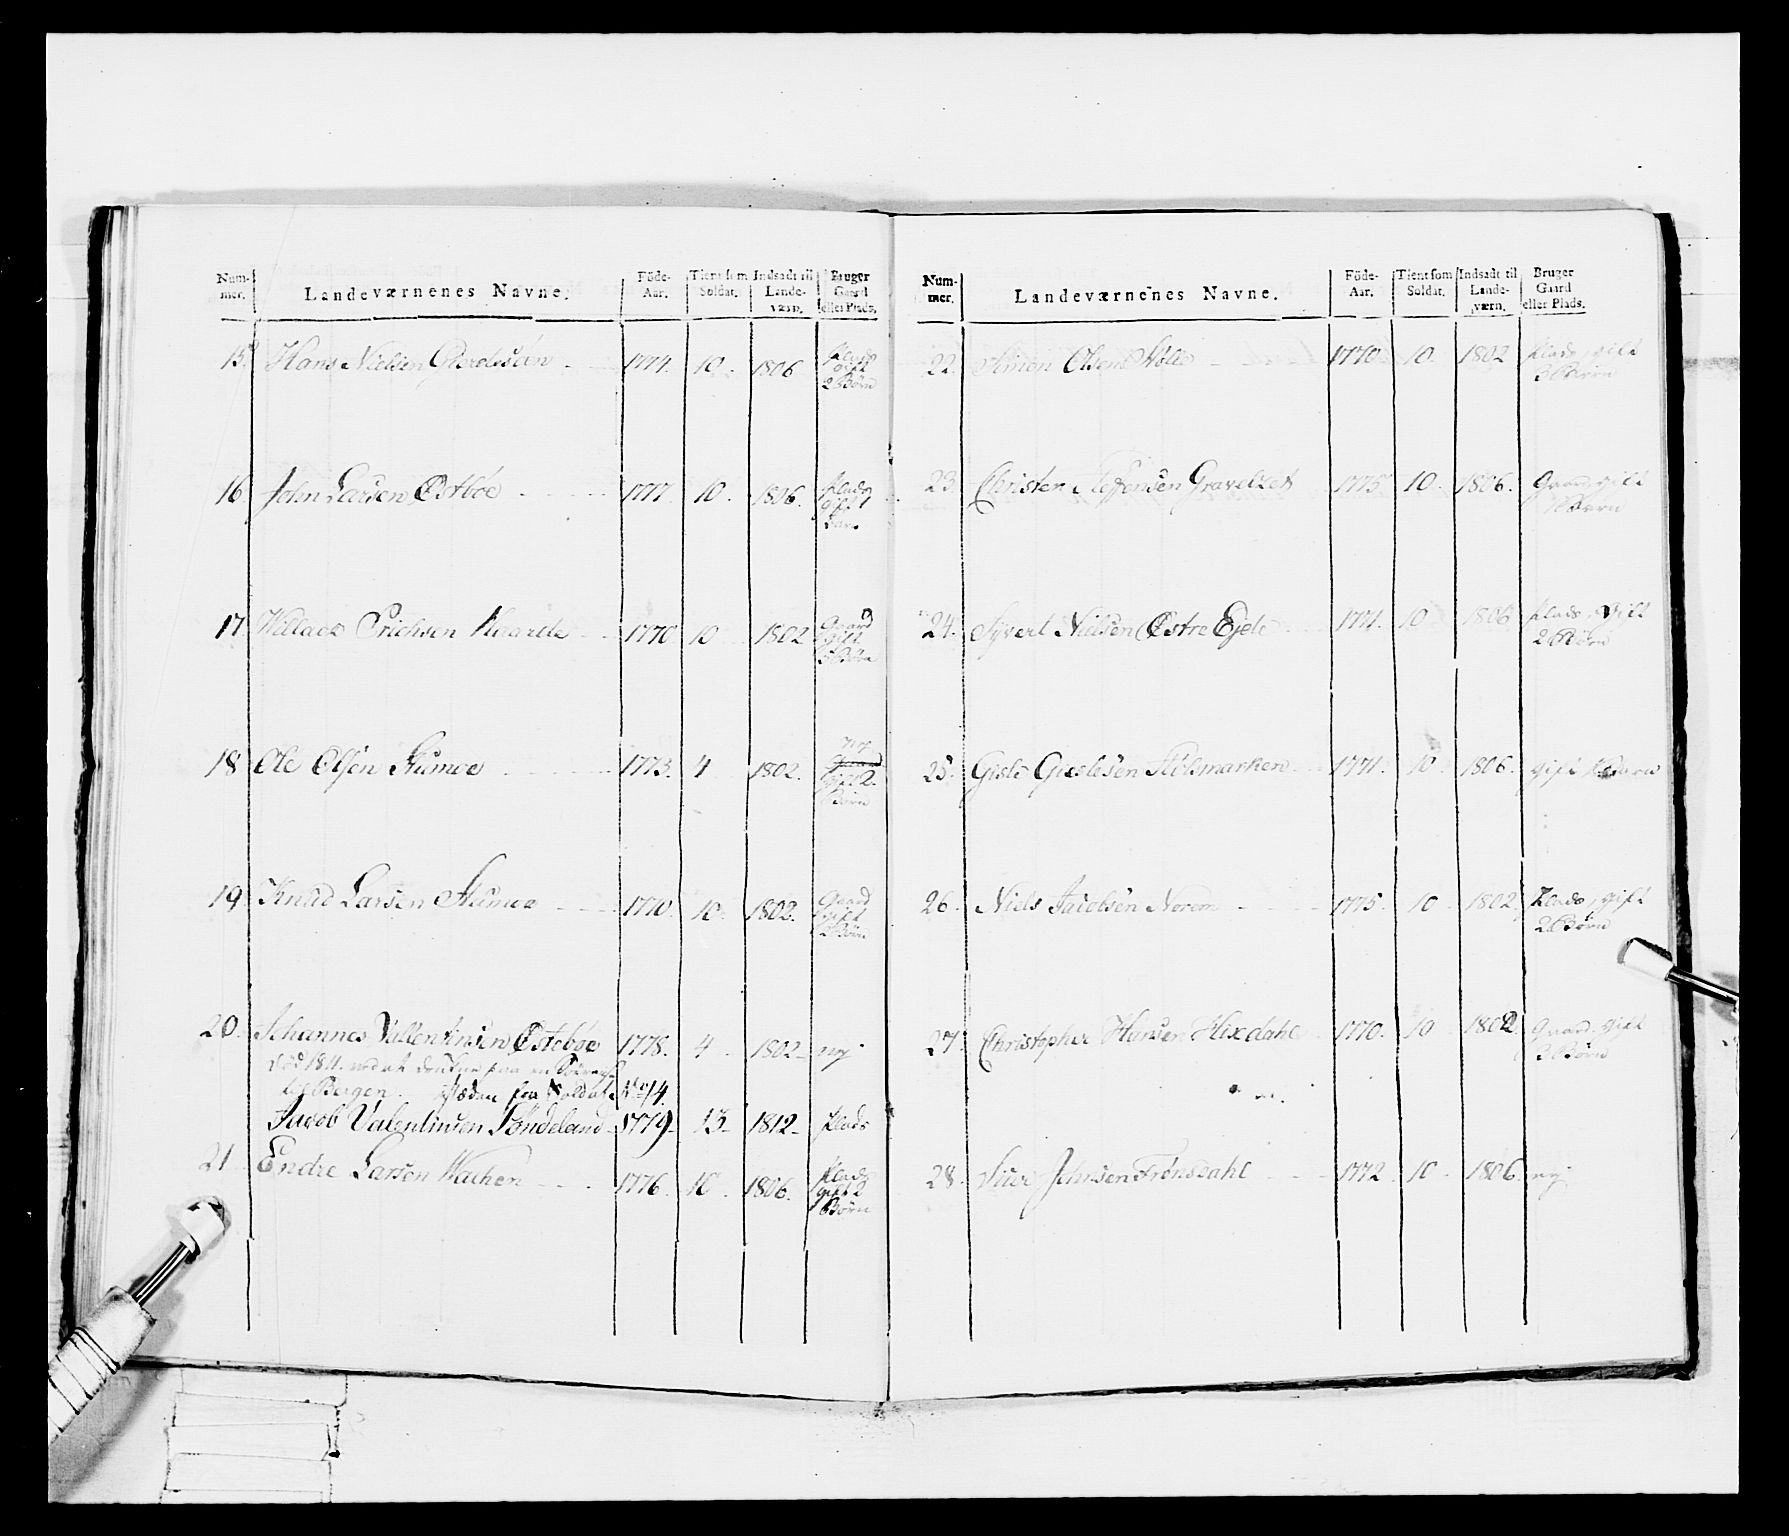 Num-
mer. Landeværnenes Navne. Föde-
Aar. Tient som
Soldat. Indsadt til
Lande-
værn. Bruger
Gaard
eller Plads.
15. Hans Nielsen 1774. 10. 1806 Plads
gift
2 Børn
16 John Larsen Østbøe 1777. 10. 1806. Plads
gift 1
Barn
17 Willads Erichsen 1770 10 1802 Gaard
gift
3 Børn
18 Ole Olsen Humoe 1773. 4 1802. nej
Gaard
gift 2.
Børn
19 Knud Larsen Humoe 1770. 10. 1802. Gaard
gift
2 Børn
20. Johannes Vallentinsen Østebøe 1778. 4. 1802 nej
død 1811. ved at drukne paa en
til Bergen. isteden for Soldat No 14.
Jacob Valentinsen Søndeland 1779 13 1812 Plads
21 Endre Larsen 1776. 10. 1806. Plads
gift 2
Børn
Num-
mer. Landeværnenes Navne. Föde-
Aar. Tient som
Soldat. Indsadt til
Lande-
værn. Bruger
Gaard
eller Plads.
22. Simon Olsen 1770. 10. 1802 Plads, gift
3 Børn
23 Christen Gravelset 1775 10. 1806. Gaard, gift
Børn
24. Syvert Nielsen Østre Ejde 1771. 10 1806 Plads, Gift
2 Børn
25. Gisle Gieslesen Stølsmarken 1771. 10 1806. gift
26. Niels Jacobsen Nerem 1775. 10 1802 Plads, gift
2 Børn
27. Christopher Hansen Hixdahl 1770. 10 1802 Gaard, gift
3 Børn
28. Siur Johnsen Frønsdahl 1772. 10 1806. nej